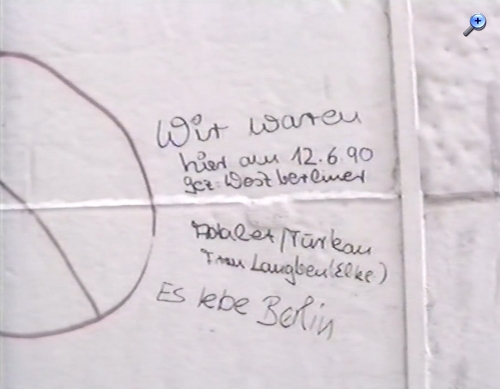 Wir waren
hier am 12.6.90
gez. Westberliner
/Türkan
Langben(Elke)
Es lebe Berlin